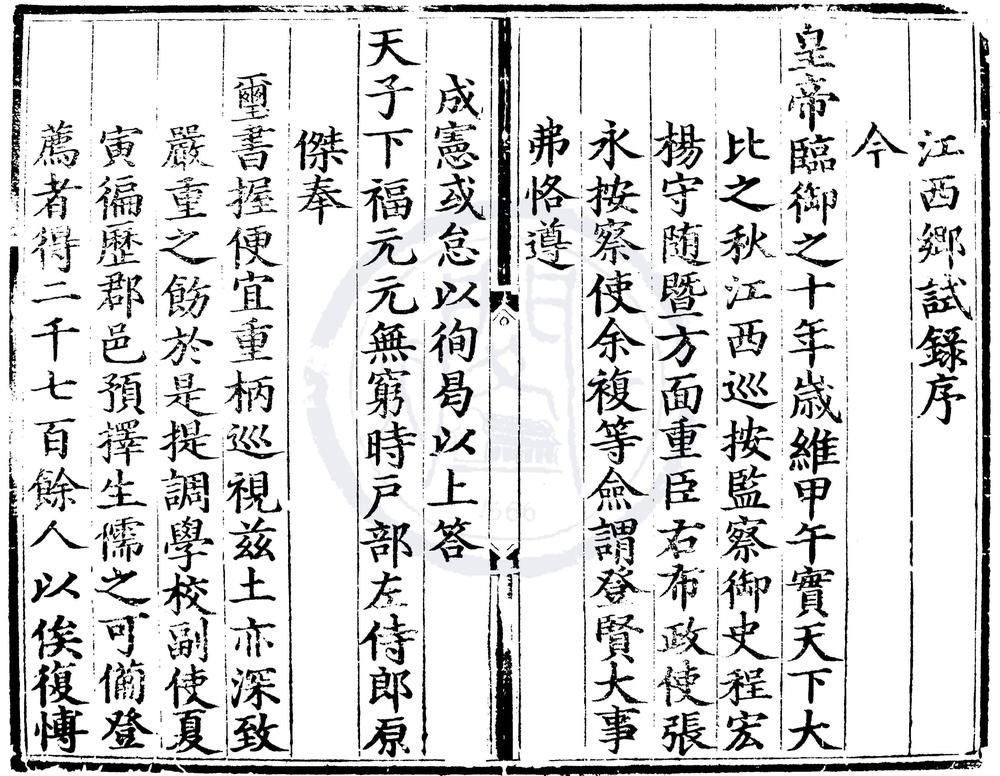 江西鄉試錄序
今
皇帝臨御之十年歲維甲午實天下大
比之秋江西巡按監察御史程宏
楊守随暨方面重臣右布政使張
永按察使余複等僉謂登賢大事
弗恪遵
成憲或怠以徇曷以上答
天子下福元元無窮時戶部左侍郎原
傑奉
璽書握便宜重柄巡視茲土亦深致
嚴重之飭於是提調學校副使夏
寅徧歷郡邑預擇生儒之可僃登
薦者得二千七百餘人以俟復慱